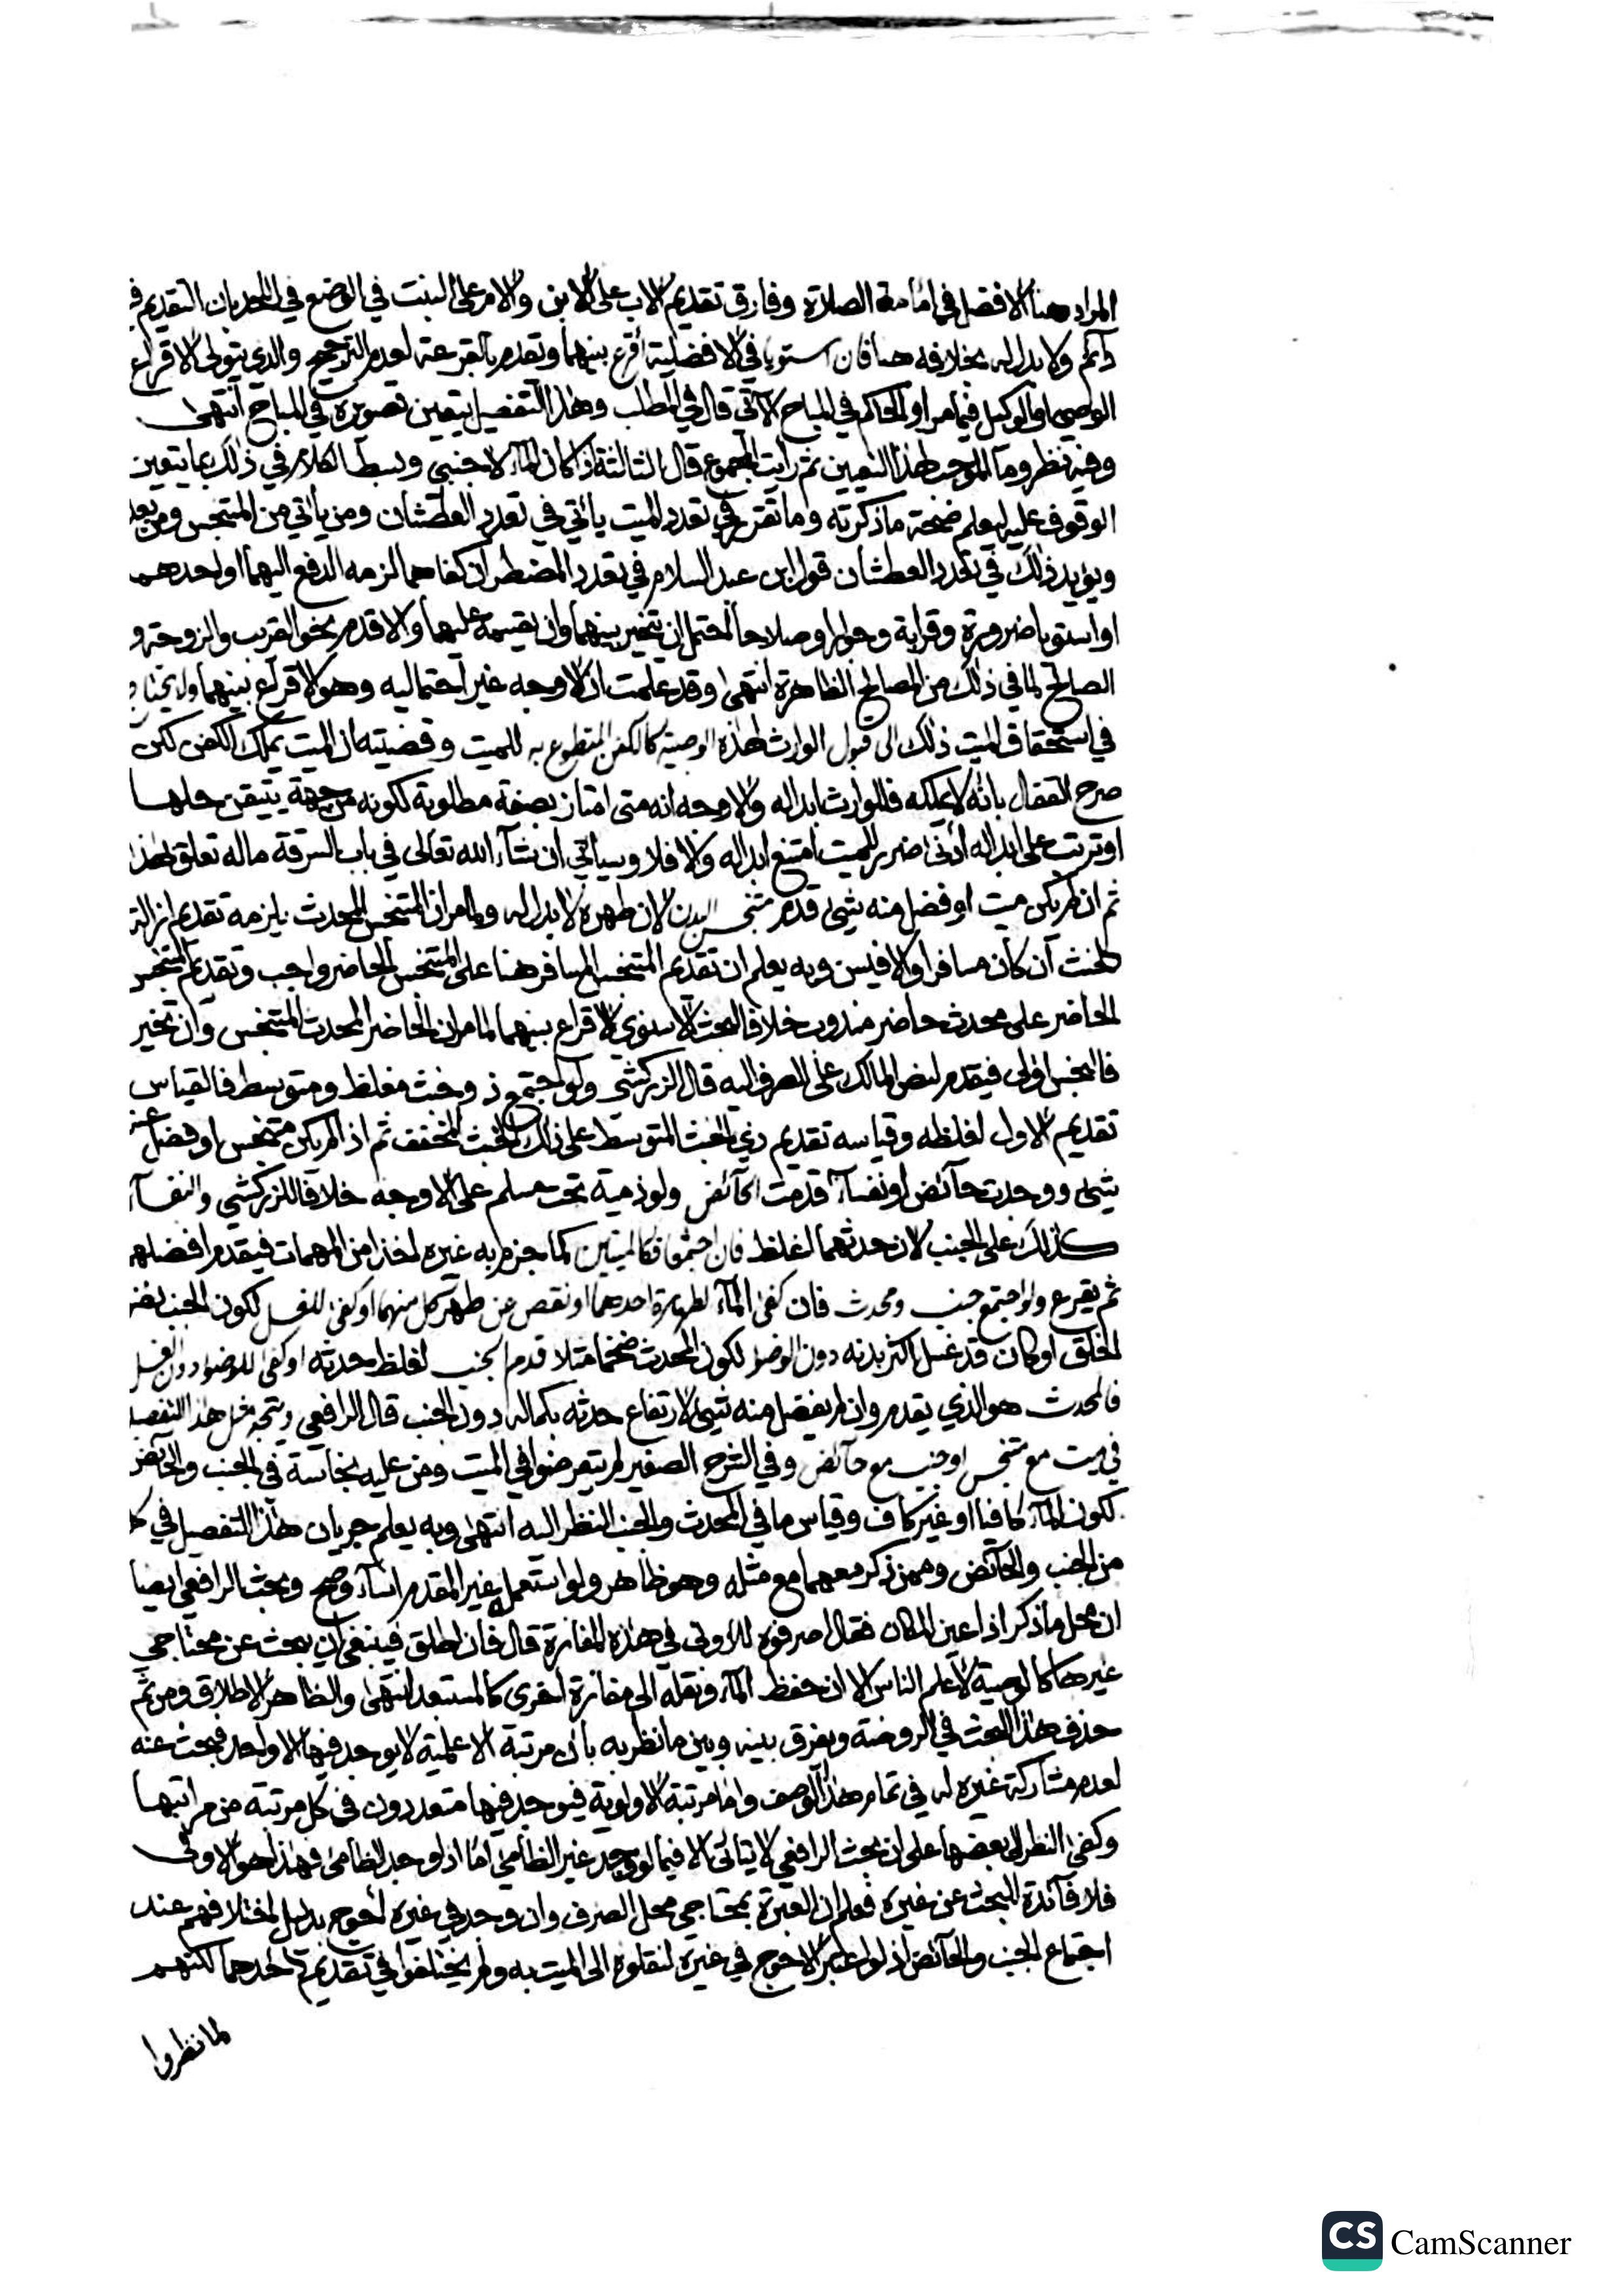 المراد هنا الافضل في امامة الصلاة وفارق تقديم الاب على الابن والام على البنت في الوضع في اللحد بان التقديم ثم
دائم ولا بدل له بخلافه هنا فان استويا في الافضلية أقرع بينهما وتقدم بالقرعة لعدم الترجيح والذي يتولى الاقراع
الوصي او الوكيل فيما مر او الحاكم في المباح الآتي قال في المطلب وهذا التفصيل يتعين تصويره في المباح انتهى
وفيه نظر وما الموجب لهذا التعيين ثم رأيت المجموع قال الثالثة اذا كان الماء لاجنبي وبسط الكلام في ذلك بما يتعين
الوقوف عليه ليعلم صحة ما ذكرته وما تقرر في تعدد الميت يأتي في تعدد العطشان ومن يأتي من المتنجس ومن بعد
ويؤيد ذلك في تعدد العطشان قول ابن عبد السلام في تعدد المضطر ان كفاهما لزمه الدفع اليهما او احدهما
او استويا ضرورة وقرابة وجوارا وصلاحا احتمل ان يتخير بينهما وان يقسمه عليهما والا قدم نحو القريب والزوجة و
الصالح لما في ذلك من المصالح الظاهرة انتهى وقد علمت ان الاوجه غير احتماليه وهو الاقراع بينهما ولا يحتاج
في استحقاق الميت ذلك الى قبول الوارث لهذه الوصية كالكفن المتطوع به للميت وقضيته ان الميت يملك الكفن لكن
صرح القفال بانه لا يملكه فللوارث ابداله والاوجه انه متى امتاز بصفة مطلوبة لكونه من جهة يتيقن حلها
او ترتب على ابداله أدنى ضرر للميت امتنع ابداله والا فلا وسيأتي ان شاء الله تعالى في باب السرقة ما له تعلق بهذا
ثم ان لم يكن ميت او فضل منه شيء قدم متنجس البدن لان طهره لا بدل له ولما مر ان المتنجس المحدث يلزمه تقديم ازالة
الخبث ان كان مسافرا والا فيسن وبه يعلم ان تقديم المتنجس المسافر هنا على المتنجس الحاضر واجب وتقديم المتنجس
الحاضر على محدث حاضر مندوب خلافا لبحث الاسنوي الاقراع بينهما لما مر ان الحاضر المحدث المتنجس وان تخير
فالنجس اولى فيقدم لنص المالك على الصرف اليه قال الزركشي ولو اجتمع ذو خبث مغلظ ومتوسط فالقياس
تقديم الاول لغلظه وقياسه تقديم ذي الخبث المتوسط على ذلك الخبث المخفف ثم اذا لم يكن متنجس او فضل عنه
شيء ووجدت حائض او نفساء قدمت الحائض ولو ذمية تحت مسلم على الاوجه خلافا للزركشي والنفساء
كذلك على الجنب لان حدثهما اغلظ فان اجتمعا فكالميتين كما جزم به غيره اخذا من المهمات فيقدم افضلهم
ثم يقرع ولو اجتمع جنب ومحدث فان كفى الماء لطهارة احدهما او نقص عن طهر كل منهما او كفى للغسل لكون الجنب نضو
الخلق او كان قد غسل اكثر بدنه دون الوضوء لكون المحدث ضخما مثلا قدم الجنب لغلظ حدثه او كفى للوضوء دون الغسل
فالمحدث هو الذي يقدم وان لم يفضل منه شيء لارتفاع حدثه بكماله دون الجنب قال الرافعي ويتجه مثل هذا التفصيل
في ميت مع متنجس او جنب مع حائض وفي الشرح الصغير لم يتعرضوا في الميت ومن عليه نجاسة في الجنب والحائض
لكون الماء كافيا او غير كاف وقياس ما في المحدث والجنب النظر اليه انتهى وبه يعلم جريان هذا التفصيل في كل
من الجنب والحائض وممن ذكر معهما مع مثله وهو ظاهر ولو استعمله غير المقدم اساء وصح وبحث الرافعي ايضا
ان محل ما ذكر اذا عين المكان فقال اصرفوه للاولى في هذه المفازة قال فان اطلق فينبغي ان يبحث عن محتاجي
غيرها كالوصية لأعلم الناس الا ان حفظ الماء ونقله الى مفازة اخرى كالمستبعد انتهى والظاهر الاطلاق ومن ثم
حذف هذا البحث في الروضة ويفرق بينه وبين ما نظر به بان مرتبة الاعلمية لا يوجد فيها الا واحد فبحث عنه
لعدم مشاركة غيره له في تمام هذا الوصف واما مرتبة الاولوية فيوجد فيها متعددون في كل مرتبة من مراتبها
وكفى النظر الى بعضها على ان بحث الرافعي لا يتأتى الا فيما لو وجد غير الظامئ اما اذا وجد الظامئ فهذا هو الاولى
فلا فائدة للبحث عن غيره فعلم ان العبرة بمحتاجي محل الصرف وان وجد في غيره احوج بدليل اختلافهم عند
اجتماع الجنب والحائض اذ لو اعتبر الاحوج في غيره لنقلوه الى الميت به ولم يختلفوا في تقديم احدهما لكنهم
لما نظروا
CS CamScanner